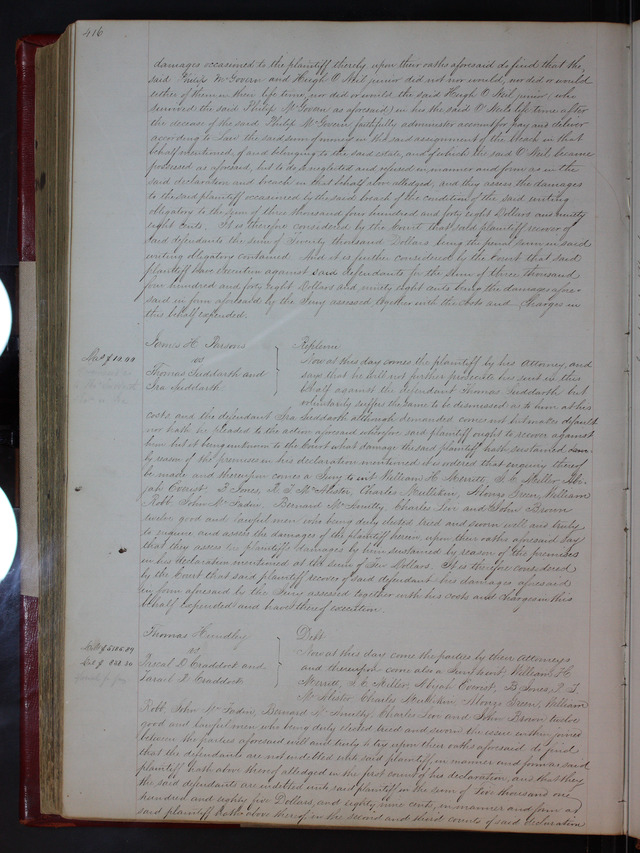 416
damages occasioned to the plaintiff thereby upon their oaths aforesaid do find that the
said Philip McGovern and Hugh O Neil junior did not nor would, nor did or would
either of them in their life time, nor did or would the said Hugh O Neil junior, who
survived the said Philip McGovern as aforesaid, in his the said O Neils life time after
the decease of the said Philip McGovern faithfully administer account for pay and deliver
according to Law the said sum of money in the said assignment of the breach in that
behalf mentioned, of and belonging to the said estate, and of which the said O Neil became
possessed as aforesaid, but to do so neglected and refused in manner and form as in the
said declaration and breach in that behalf above alledged, and they assess the damages
to the said plaintiff occasioned by the said breach of the condition of the said writing
obligatory to the sum of three thousand four hundred and forty eight Dollars and ninety
eight cents. It is therefore considered by the Court that said plaintiff recover of
said defendants the sum of Twenty thousand Dollars being the penal sum in said
writing obligatory contained. And it is further considered by the Court that said
plaintiff have execution against said defendants for the sum of three thousand
four hundred and forty eight Dollars and ninety eight cents being the damages afore-
said in form aforesaid by the Jury assessed together with the costs and charges in
this behalf expended.
James H. Parsons
vs
Thomas Suddarth and
Ira Suddarth
Replevin
Now at this day comes the plaintiff by his Attorney, and
says that he will not further prosecute his suit in this
behalf against the defendant Thomas Suddarth but
voluntarily suffers the same to be dismissed as to him at his
costs, and the defendant Ira Suddarth although demanded comes not but makes default
nor hath he pleaded to the action aforesaid wherefore said plaintiff ought to recover against
him but it being unknown to the Court what damage the said plaintiff hath sustained
by reason of the premises in his declaration mentioned it is ordered that enquiry thereof
be made and thereupon comes a Jury to wit William H. Merritt, Miller Abi-
jah Everest Jones, McAlister, Charles Mullikin, Alonzo Green, William
Robb John McFaden, Bernard McAnulty, Charles Levi and John Brown
twelve good and lawful men who being duly elected tried and sworn well and truly
to enquire and assess the damages of the plaintiff herein, upon their oaths aforesaid say
that they assess the plaintiffs damages by him sustained by reason of the premises
in his declaration mentioned at the sum of Ten Dollars. It is therefore considered
by the Court that said plaintiff recover of said defendant his damages aforesaid
in form aforesaid by the Jury assessed together with his costs and charges in this
behalf expended and have thereof execution.
Thomas Hundley
vs
Pascal D Craddock and
Craddock
Debt
Now at this day come the parties by their Attorneys
and thereupon came also a Jury to wit William H.
Merritt, Miller, Abijah Everest, Jones,
McAlister, Charles Mullikin, Alonzo Green, William
Robb, John McFaden, Bernard McAnulty, Charles Levi and John Brown twelve
good and lawful men who being duly elected tried and sworn the issue within joined
between the parties aforesaid well and truly to try upon their oaths aforesaid do find
that the defendants are not indebted unto said plaintiff in manner and form as said
plaintiff hath above thereof alledged in the first count of his declaration, and that they
the said defendants are indebted unto said plaintiff in the sum of thousand one
hundred and eighty five Dollars and eighty nine cents, in manner and form as
said plaintiff hath above thereof in the second and third counts of said declaration